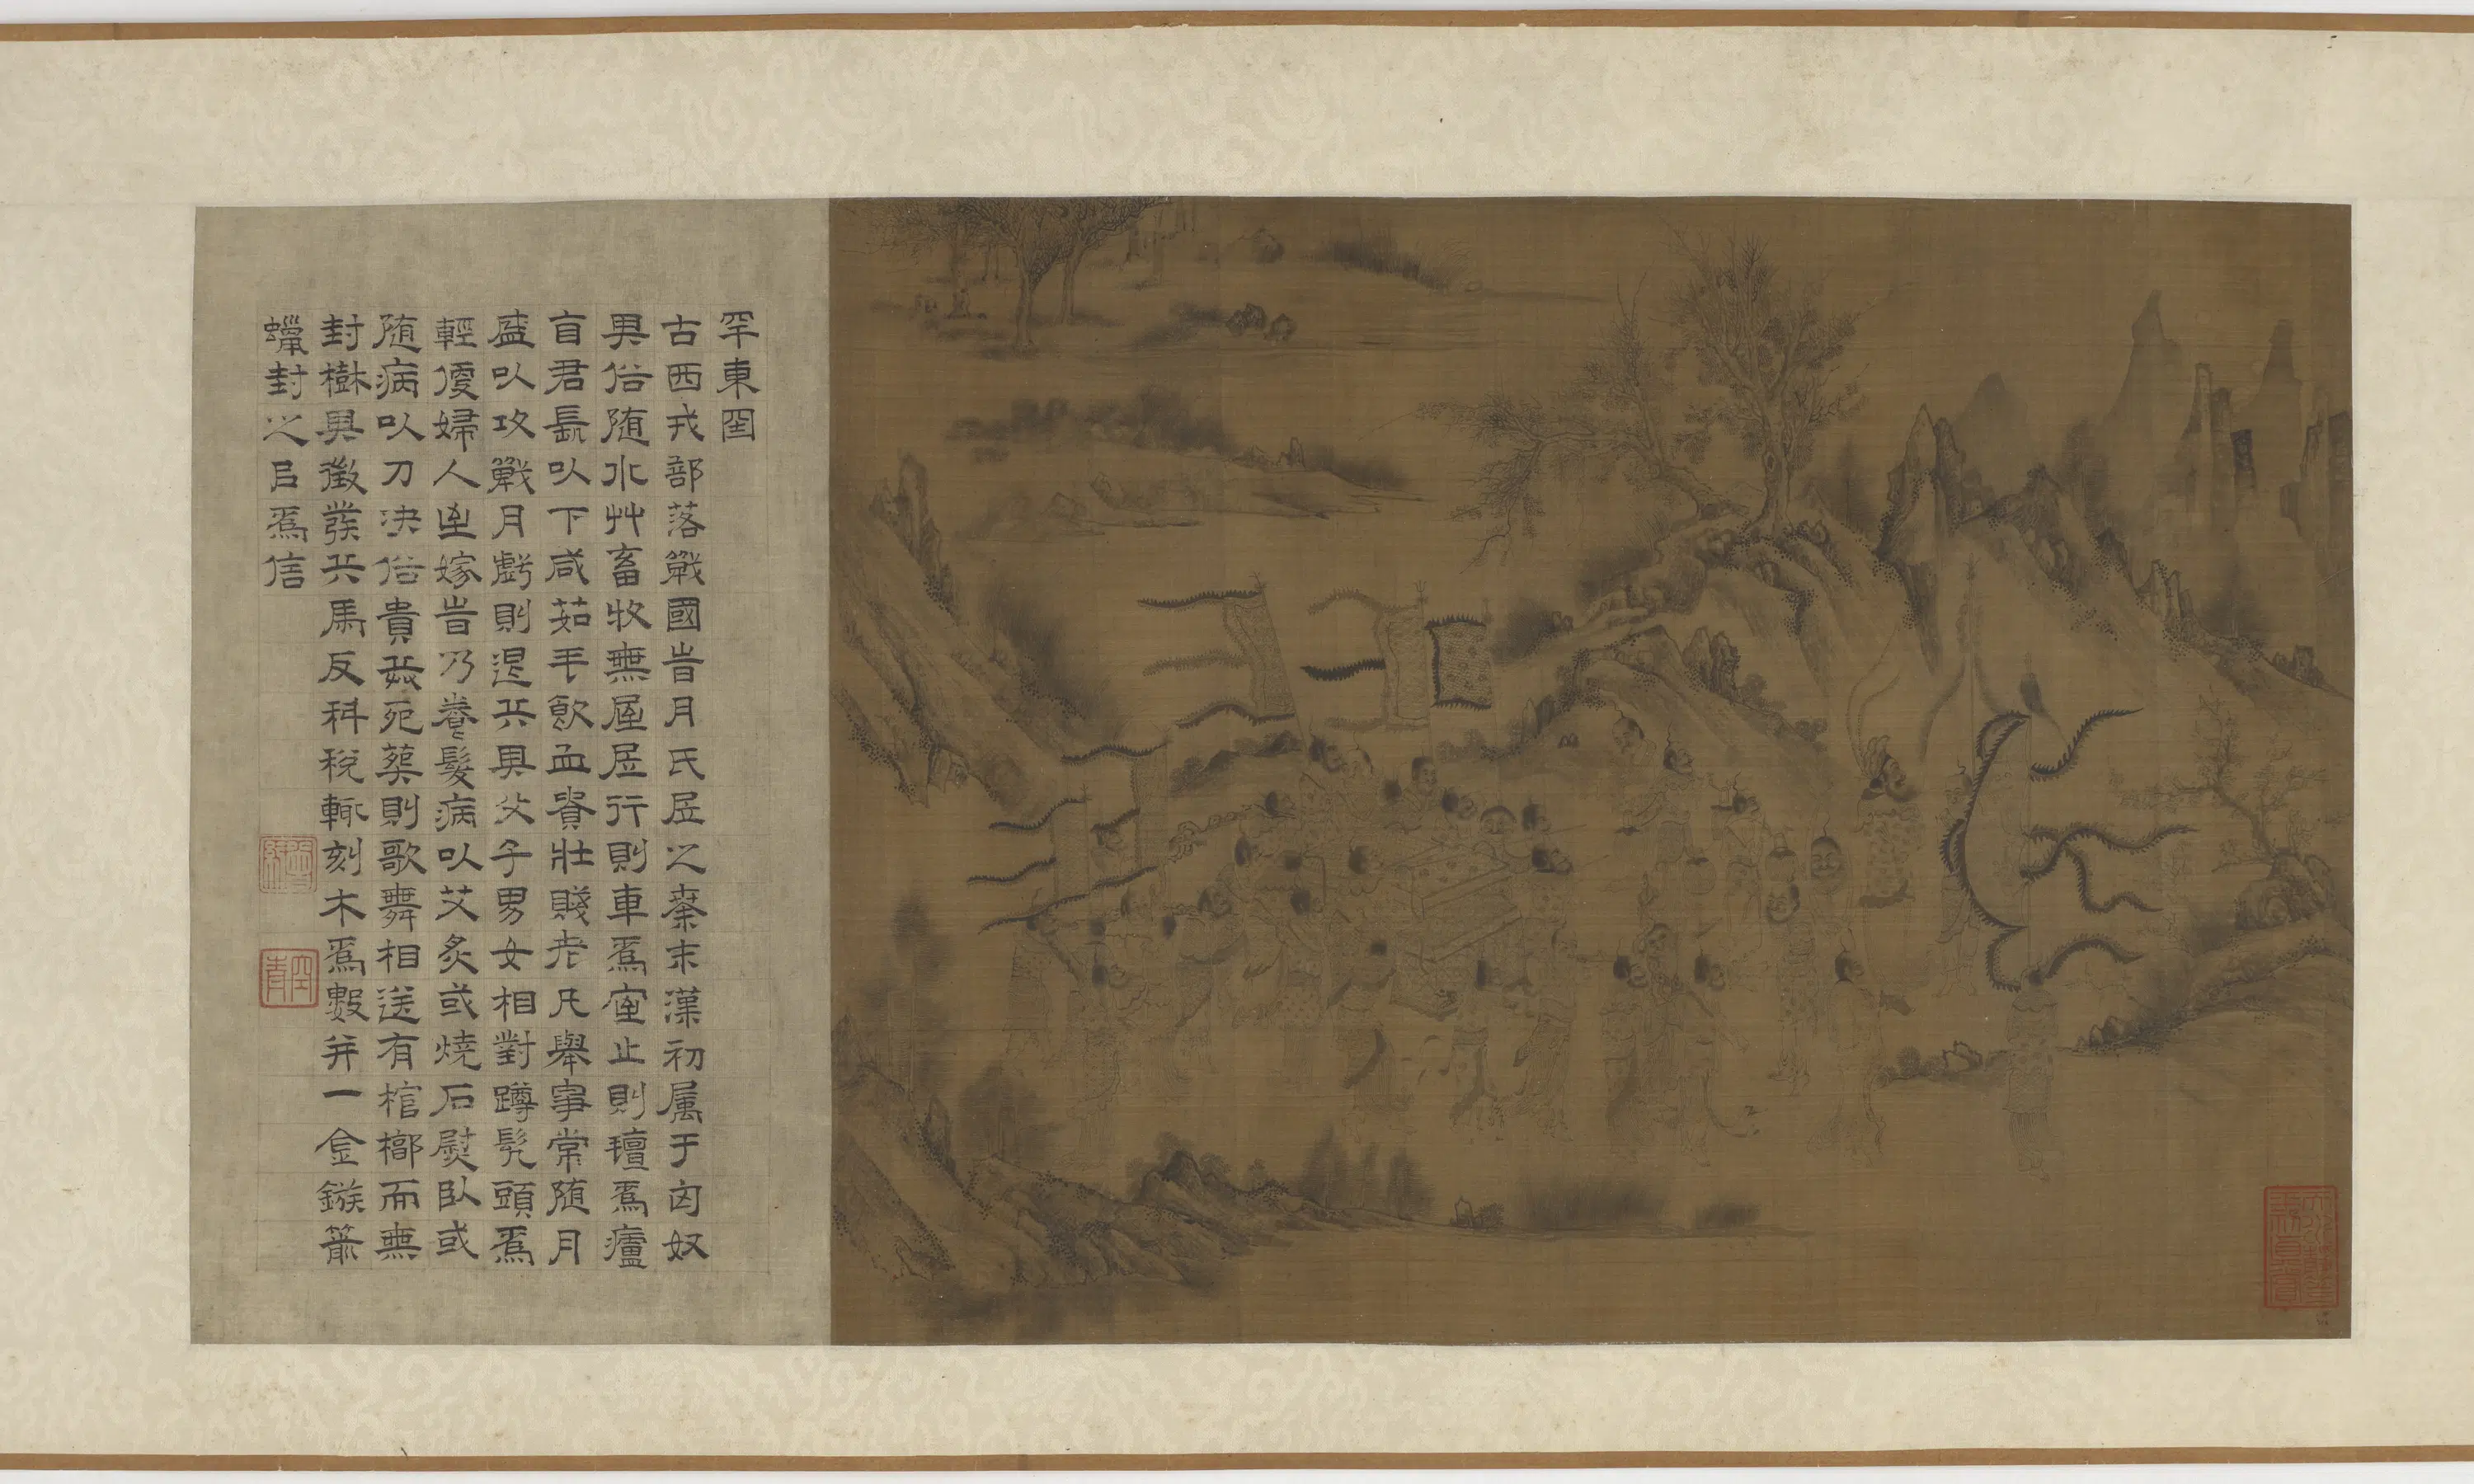 罕東囯
古西戎部落戰國旹月氏居之秦末漢初属于匈奴
其俗随水艸畜牧無屋居行則車爲室止則氊爲廬
自君長以下咸茹毛飲血貴壯賤老凡舉事常随月
盛以攻戰月虧則退兵其父子男女相對蹲髠頭爲
輕便婦人至嫁旹乃養髮病以艾炙或燒石熨卧或
随病以刀决俗貴兵死葬則歌舞相送有棺槨而無
封樹其徵發兵馬及科稅輒刻木爲數并一金鏃箭
蠟封之以爲信
空青